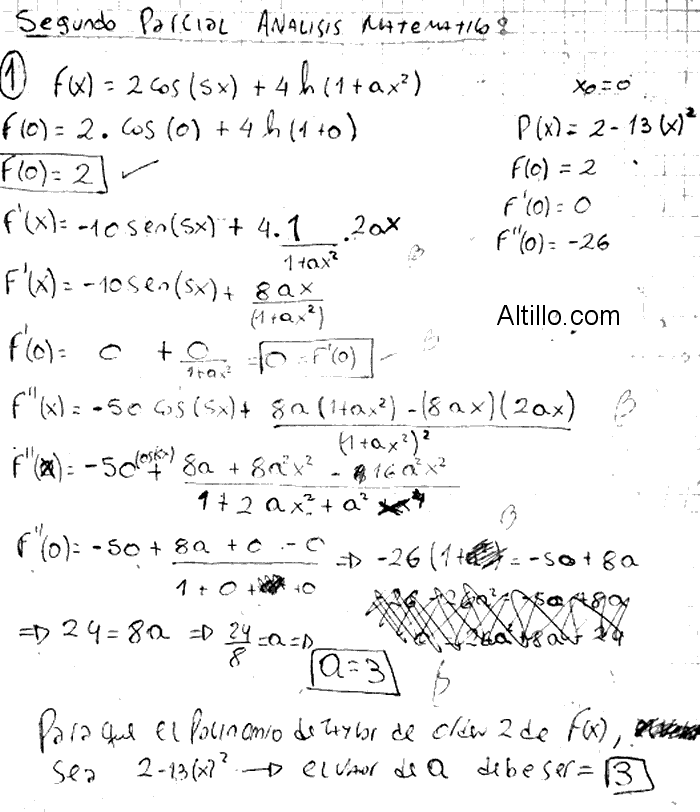 Segundo Parcial Analisis Matematico:
1 f(x) = 2 cos(5x) + 4 ln(1+ax²)    x₀=0
f(0) = 2 . cos(0) + 4 ln(1+0)    P(x) = 2 - 13(x)²
f(0) = 2 ✓    f(0) = 2
f'(x) = -10 sen(5x) + 4 . 1/(1+ax²) . 2ax    f'(0) = 0
f''(0) = -26
f'(x) = -10 sen(5x) + 8ax/(1+ax²)
Altillo.com
f'(0) = 0 + 0/(1+ax²) = 0 = f'(0)
f''(x) = -50 cos(5x) + (8a(1+ax²) - (8ax)(2ax))/(1+ax²)²
f''(x) = -50 cos(5x) + (8a + 8a²x² - 16a²x²)/(1 + 2ax² + a²
f''(0) = -50 + (8a + 0 - 0)/(1 + 0 + 0) ⇒ -26(1 = -50 + 8a
⇒ 24 = 8a ⇒ 24/8 = a ⇒
a = 3
Para que el Polinomio de Taylor de orden 2 de f(x),
sea 2-13(x)² → el valor de a debe ser = 3